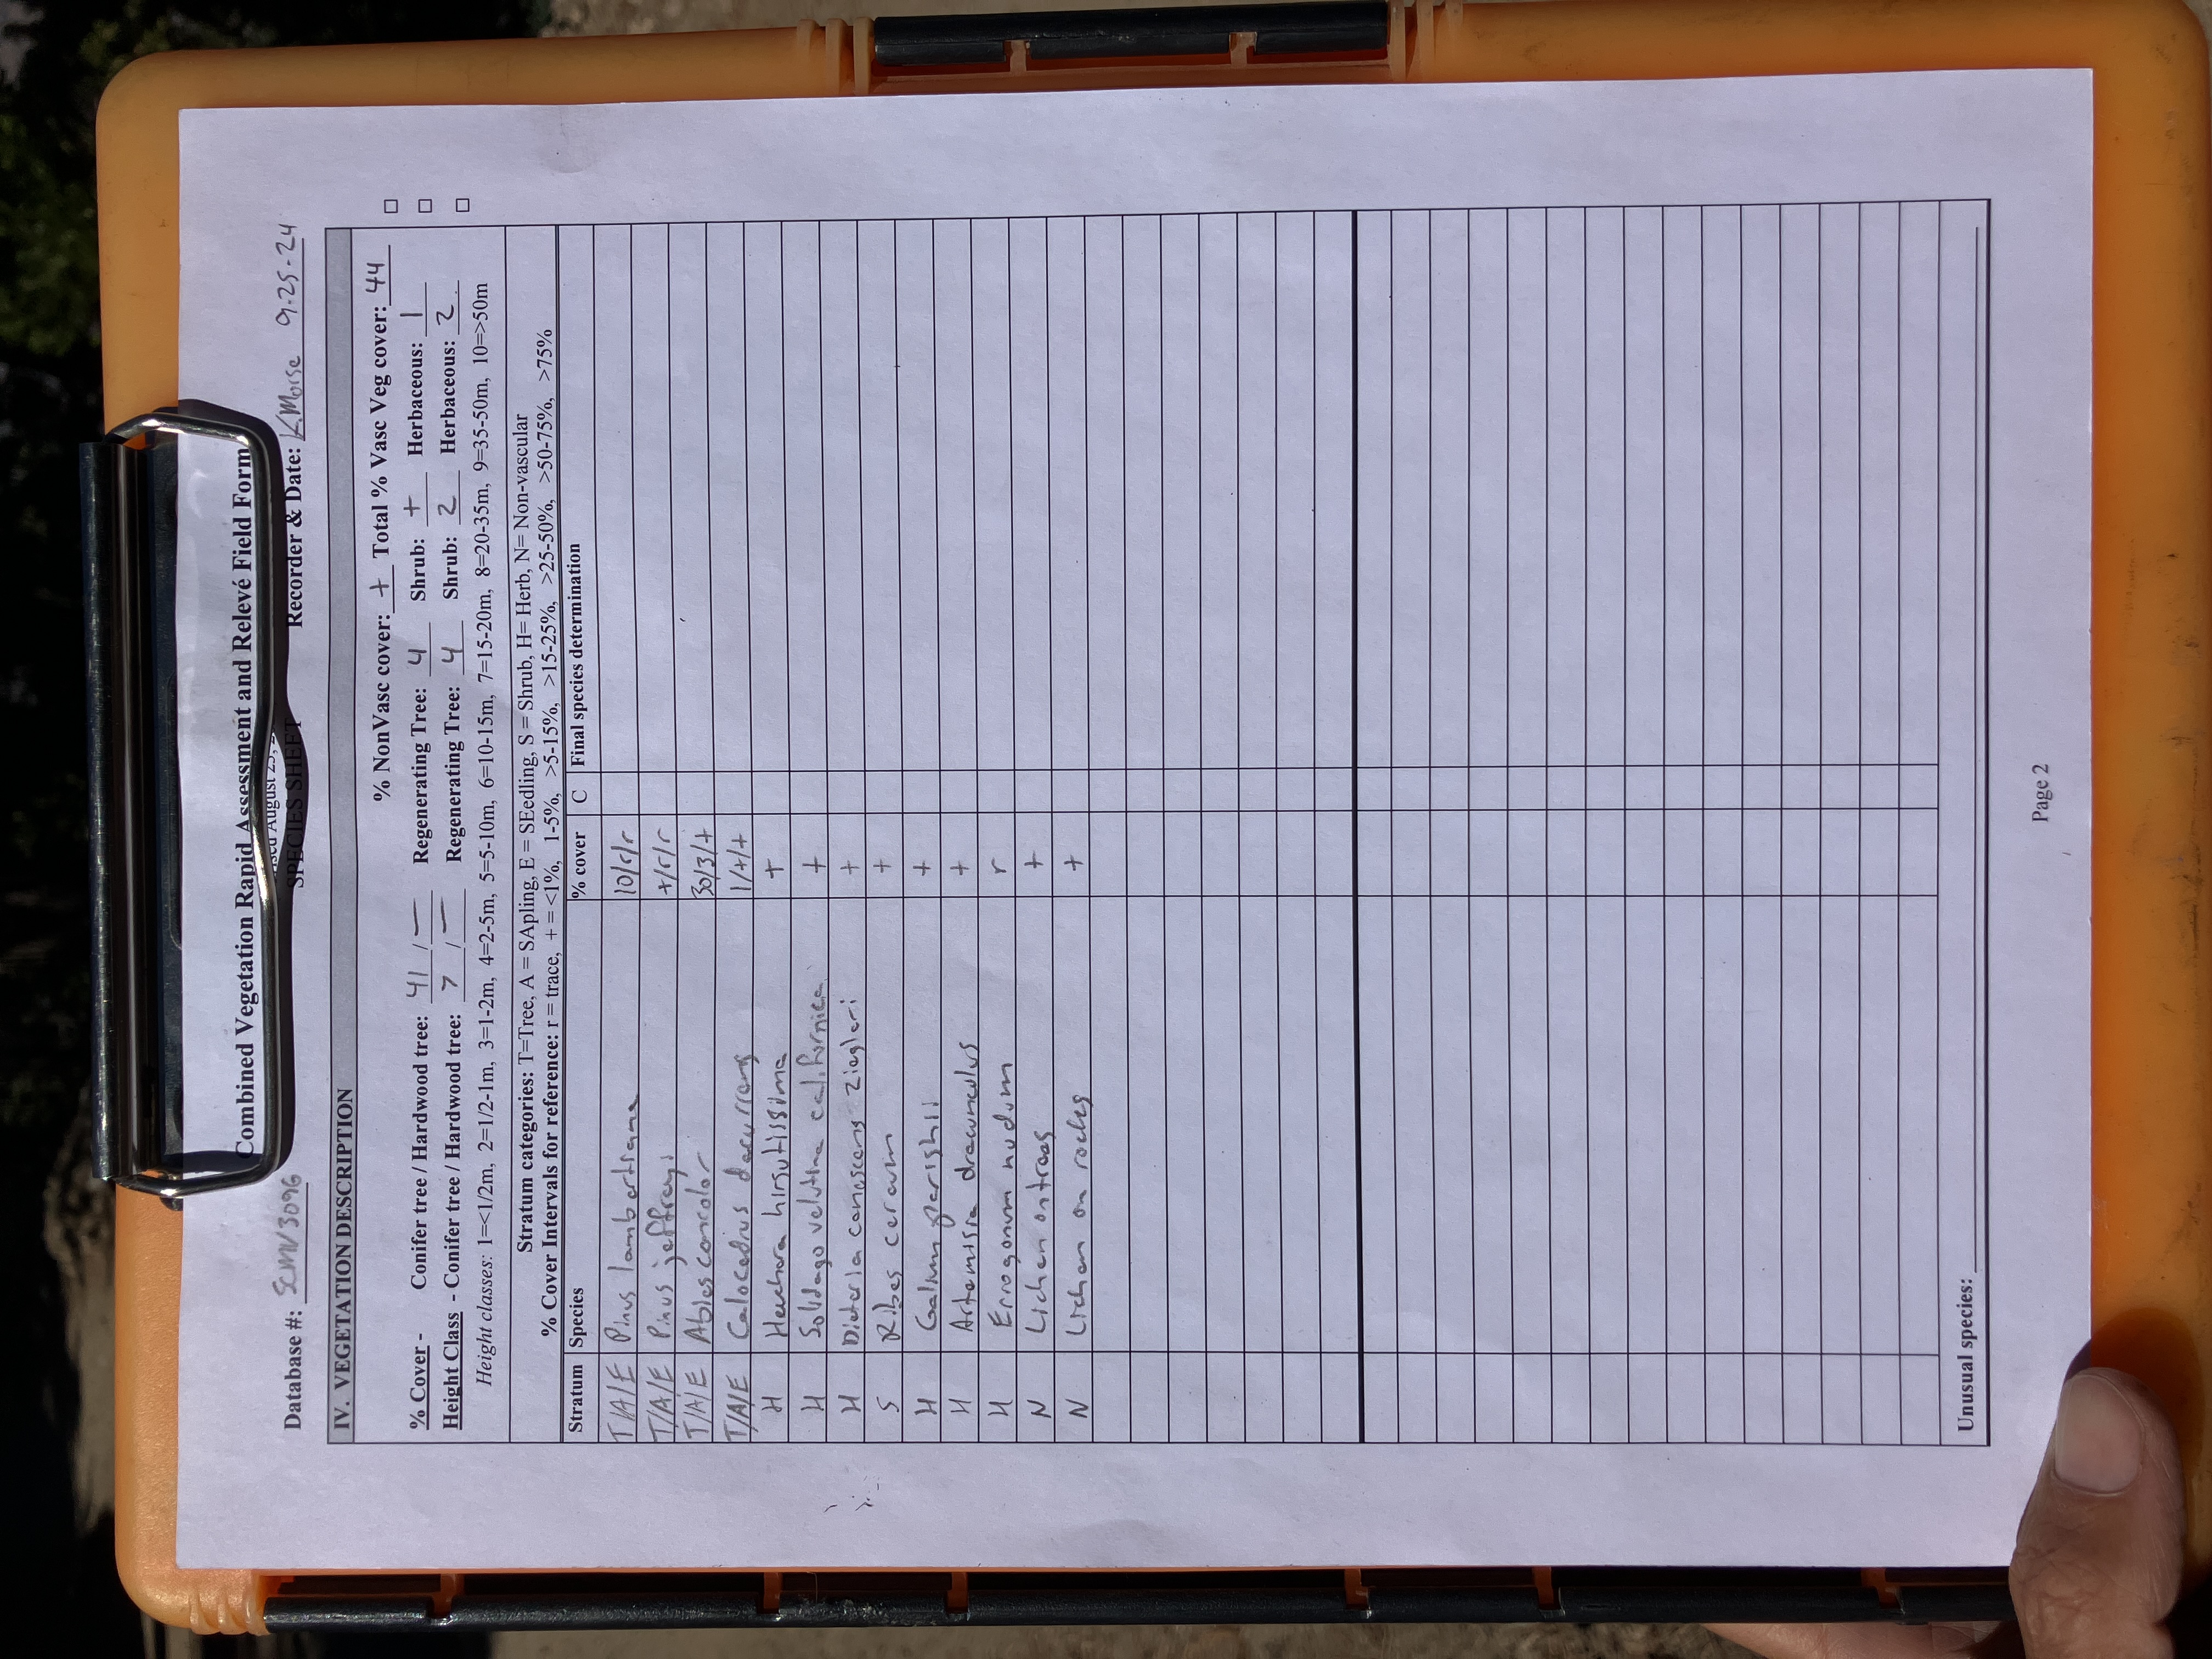 Combined Vegetation Rapid Assessment and Relevé Field Form
August 23,
SPECIES SHEET
Database #: SCMV3096 Recorder & Date: K.Morse 9-25-24
IV. VEGETATION DESCRIPTION
% NonVasc cover: + Total % Vasc Veg cover: 44 □
% Cover - Conifer tree / Hardwood tree: 41 / — Regenerating Tree: 4 Shrub: + Herbaceous: 1 □
Height Class - Conifer tree / Hardwood tree: 7 / — Regenerating Tree: 4 Shrub: 2 Herbaceous: 2 □
Height classes: 1=<1/2m, 2=1/2-1m, 3=1-2m, 4=2-5m, 5=5-10m, 6=10-15m, 7=15-20m, 8=20-35m, 9=35-50m, 10=>50m
Stratum categories: T=Tree, A = SApling, E = SEedling, S = Shrub, H= Herb, N= Non-vascular
% Cover Intervals for reference: r = trace, + = <1%, 1-5%, >5-15%, >15-25%, >25-50%, >50-75%, >75%
Stratum Species % cover C Final species determination
T/A/E Pinus lambertiana 10/r/r
T/A/E Pinus jeffreyi +/r/r
T/A/E Abies concolor 30/3/+
T/A/E Calocedrus decurrens 1/+/+
H Heuchera hirsutissima +
H Solidago velutina californica +
H Dieteria canescens ziegleri +
S Ribes cereum +
H Galium parishii +
H Artemisia dracunculus +
H Eriogonum nudum r
N Lichen on trees +
N Lichen on rocks +
Unusual species:
Page 2